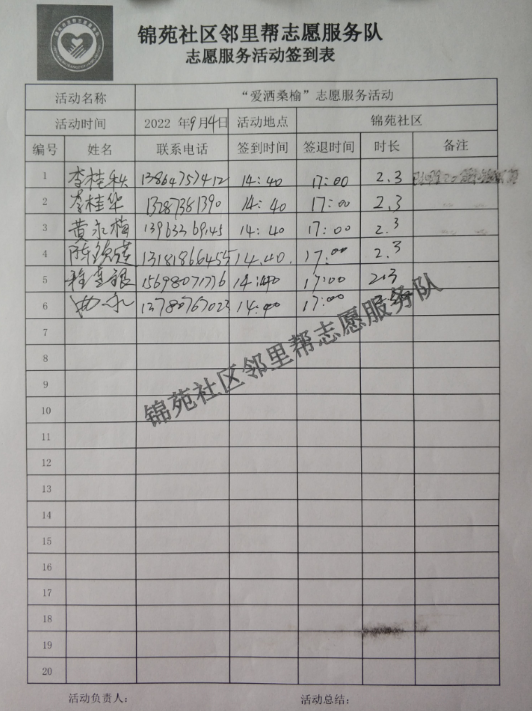 锦苑社区邻里帮志愿服务队
志愿服务活动签到表
活动名称 “爱洒桑榆”志愿服务活动
活动时间 2022 年9月4日 活动地点 锦苑社区
编号 姓名 联系电话 签到时间 签退时间 时长 备注
1 李桂秋 13864757412 14:40 17:00 2.3
2 李桂华 13287381390 14:40 17:00 2.3
3 黄永梅 14:40 17:00 2.3
4 13181866455 14.40. 17:00 2.3
5 15698071776 14:40 17:00 2.3
6 13780767023 14:40 17:00
锦苑社区邻里帮志愿服务队
7
8
9
10
11
12
13
14
15
16
17
18
19
20
活动负责人: 活动总结: